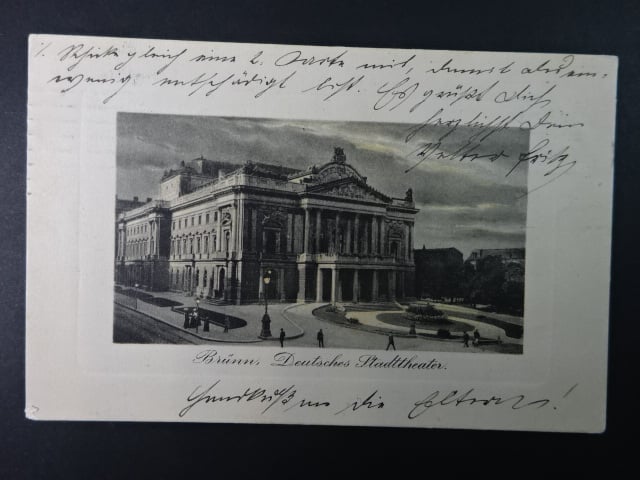 Schicke gleich eine 2. Karte mit, damit du ein
wenig entschädigt bist. Es grüßt Dich
herzlichst Dein
Vetter Fritz
Brünn. Deutsches Stadttheater.
Handkuß an die Eltern!